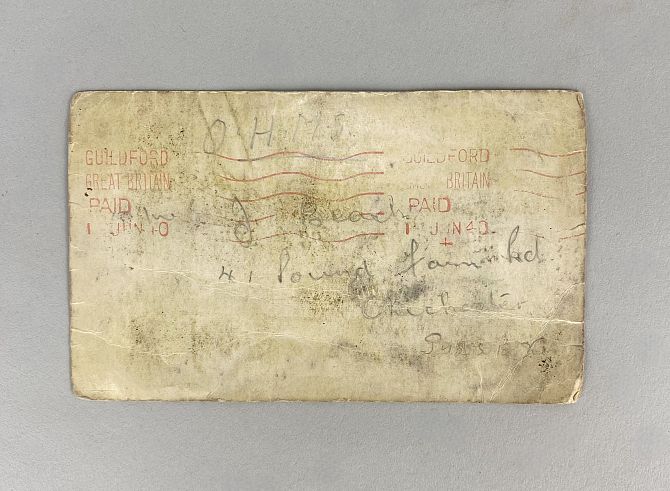 O.H.M.S.
GUILDFORD
GREAT BRITAIN
PAID
1 JUN 40
GUILDFORD
BRITAIN
PAID
1 JUN 40
J Beach
41 Pound Farm Rd
Chichester
Sussex